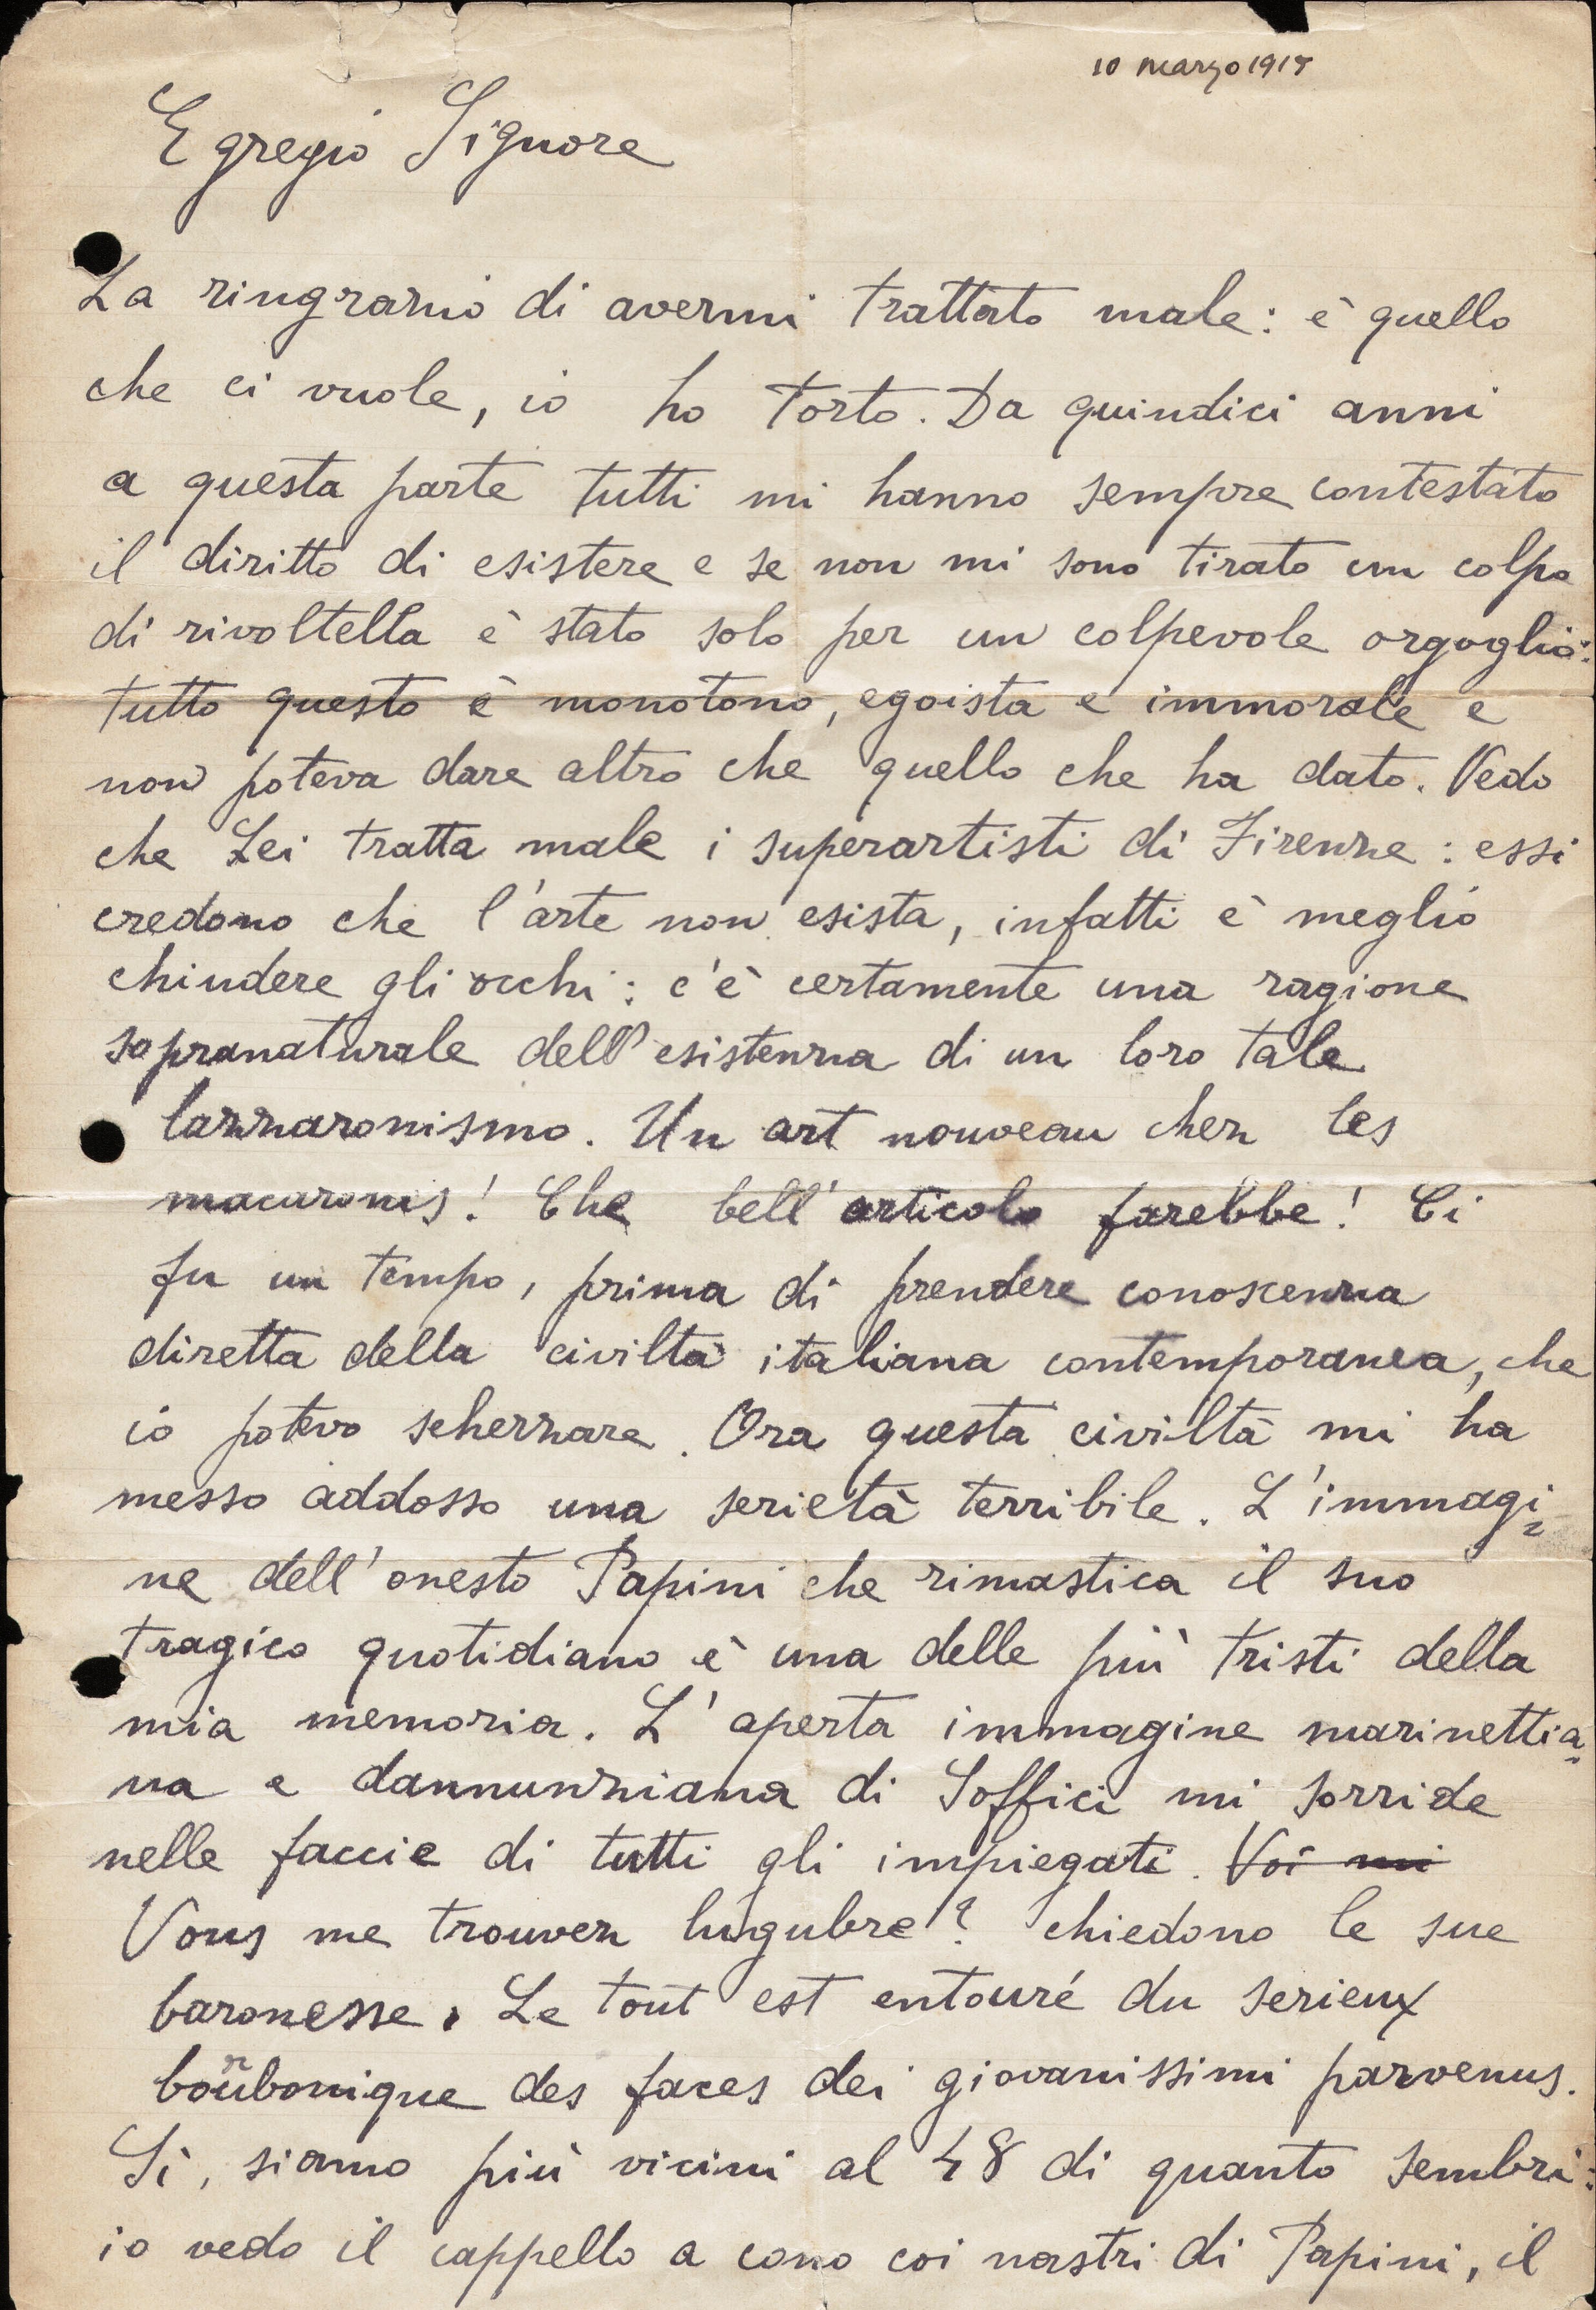 10 marzo 1915
Egregio Signore
La ringrazio di avermi trattato male: è quello
che ci vuole, io ho torto. Da quindici anni
a questa parte tutti mi hanno sempre contestato
il diritto di esistere e se non mi sono tirato un colpo
di rivoltella è stato solo per un colpevole orgoglio:
tutto questo è monotono, egoista e immorale e
non poteva dare altro che quello che ha dato. Vedo
che Lei tratta male i superartisti di Firenze: essi
credono che l'arte non esista, infatti è meglio
chiudere gli occhi: c'è certamente una ragione
sopranaturale dell'esistenza di un loro tale
lazzaronismo. Un art nouveau chez les
macaronis! Che bell'articolo farebbe! Ci
fu un tempo, prima di prendere conoscenza
diretta della civiltà italiana contemporanea, che
io potevo scherzare. Ora questa civiltà mi ha
messo addosso una serietà terribile. L'immagi=
ne dell'onesto Papini che rimastica il suo
tragico quotidiano è una delle più tristi della
mia memoria. L'aperta immagine marinettia=
na e dannunziana di Soffici mi sorride
nelle faccie di tutti gli impiegati. Voi mi
Vous me trouvez lugubre? chiedono le sue
baronesse. Le tout est entouré du serieux
bourbonique des faces dei giovanissimi parvenus.
Sì, siamo più vicini al 48 di quanto sembri:
io vedo il cappello a cono coi nastri di Papini, il